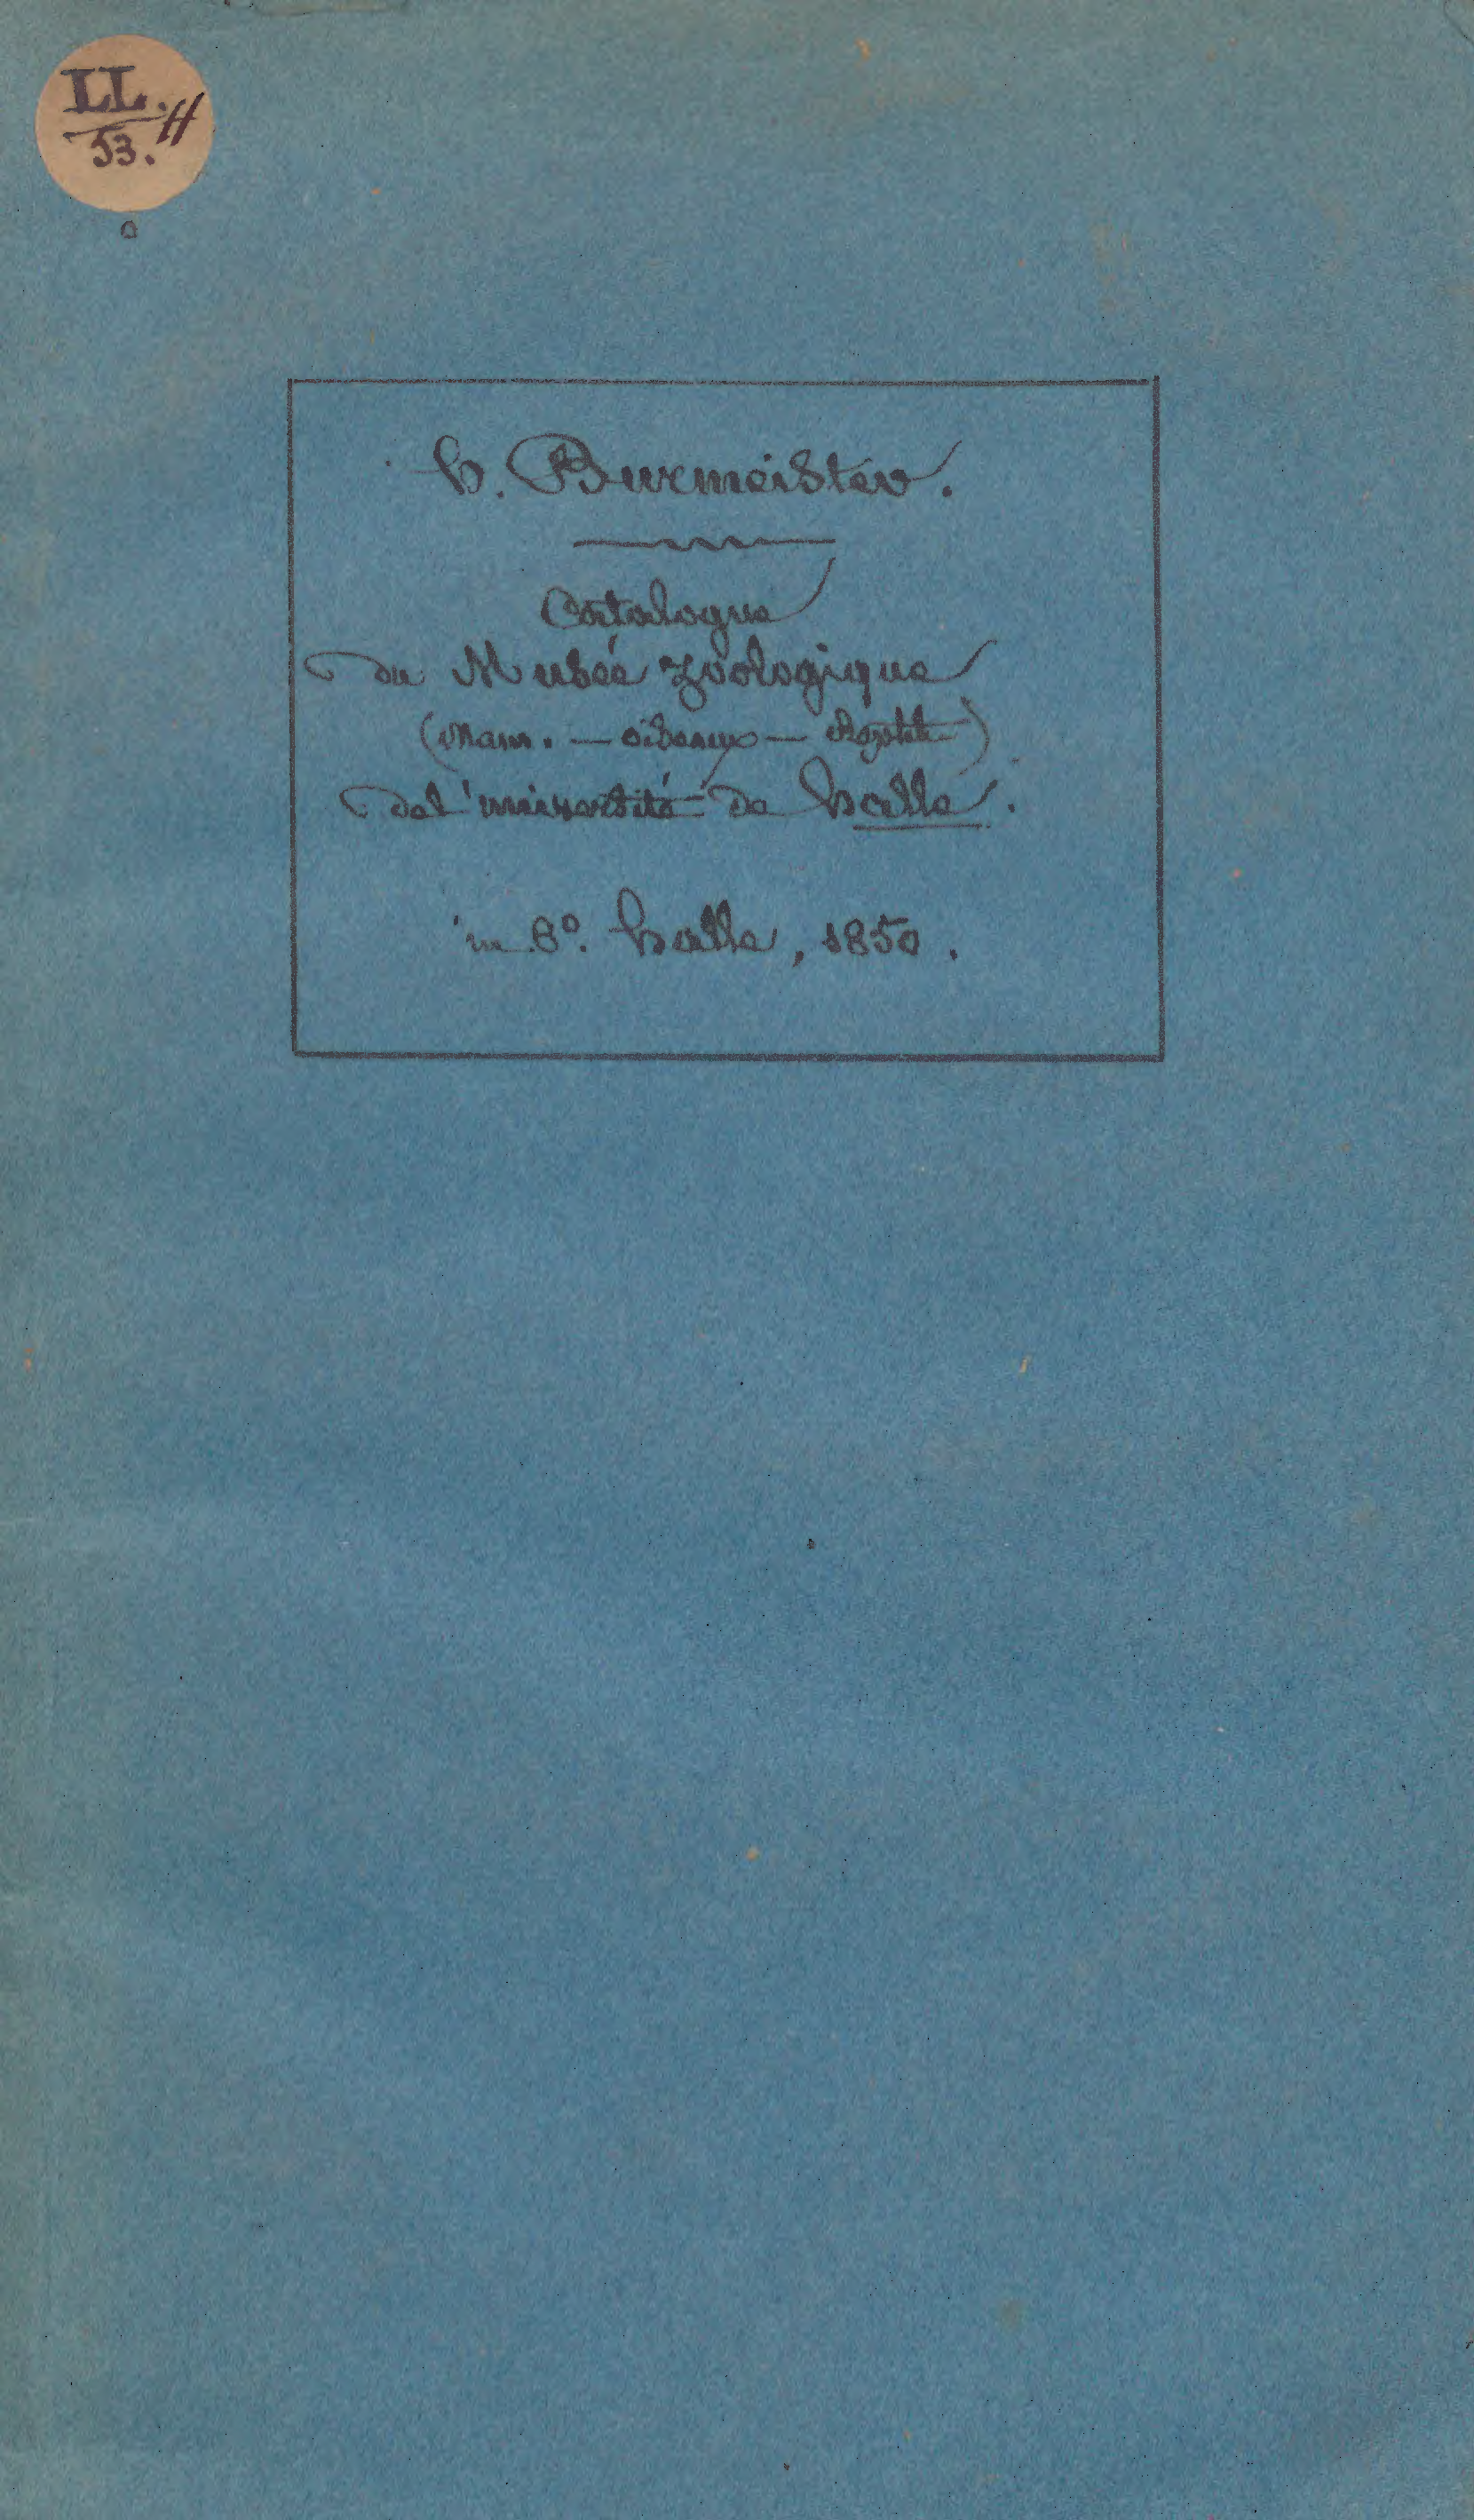 LL. H
53.
H. Burmeister.
Catalogue
du Musée zoologique
(Mam. — oiseaux — Reptil)
de l'université de Halle.
in 8°. Halle, 1850.